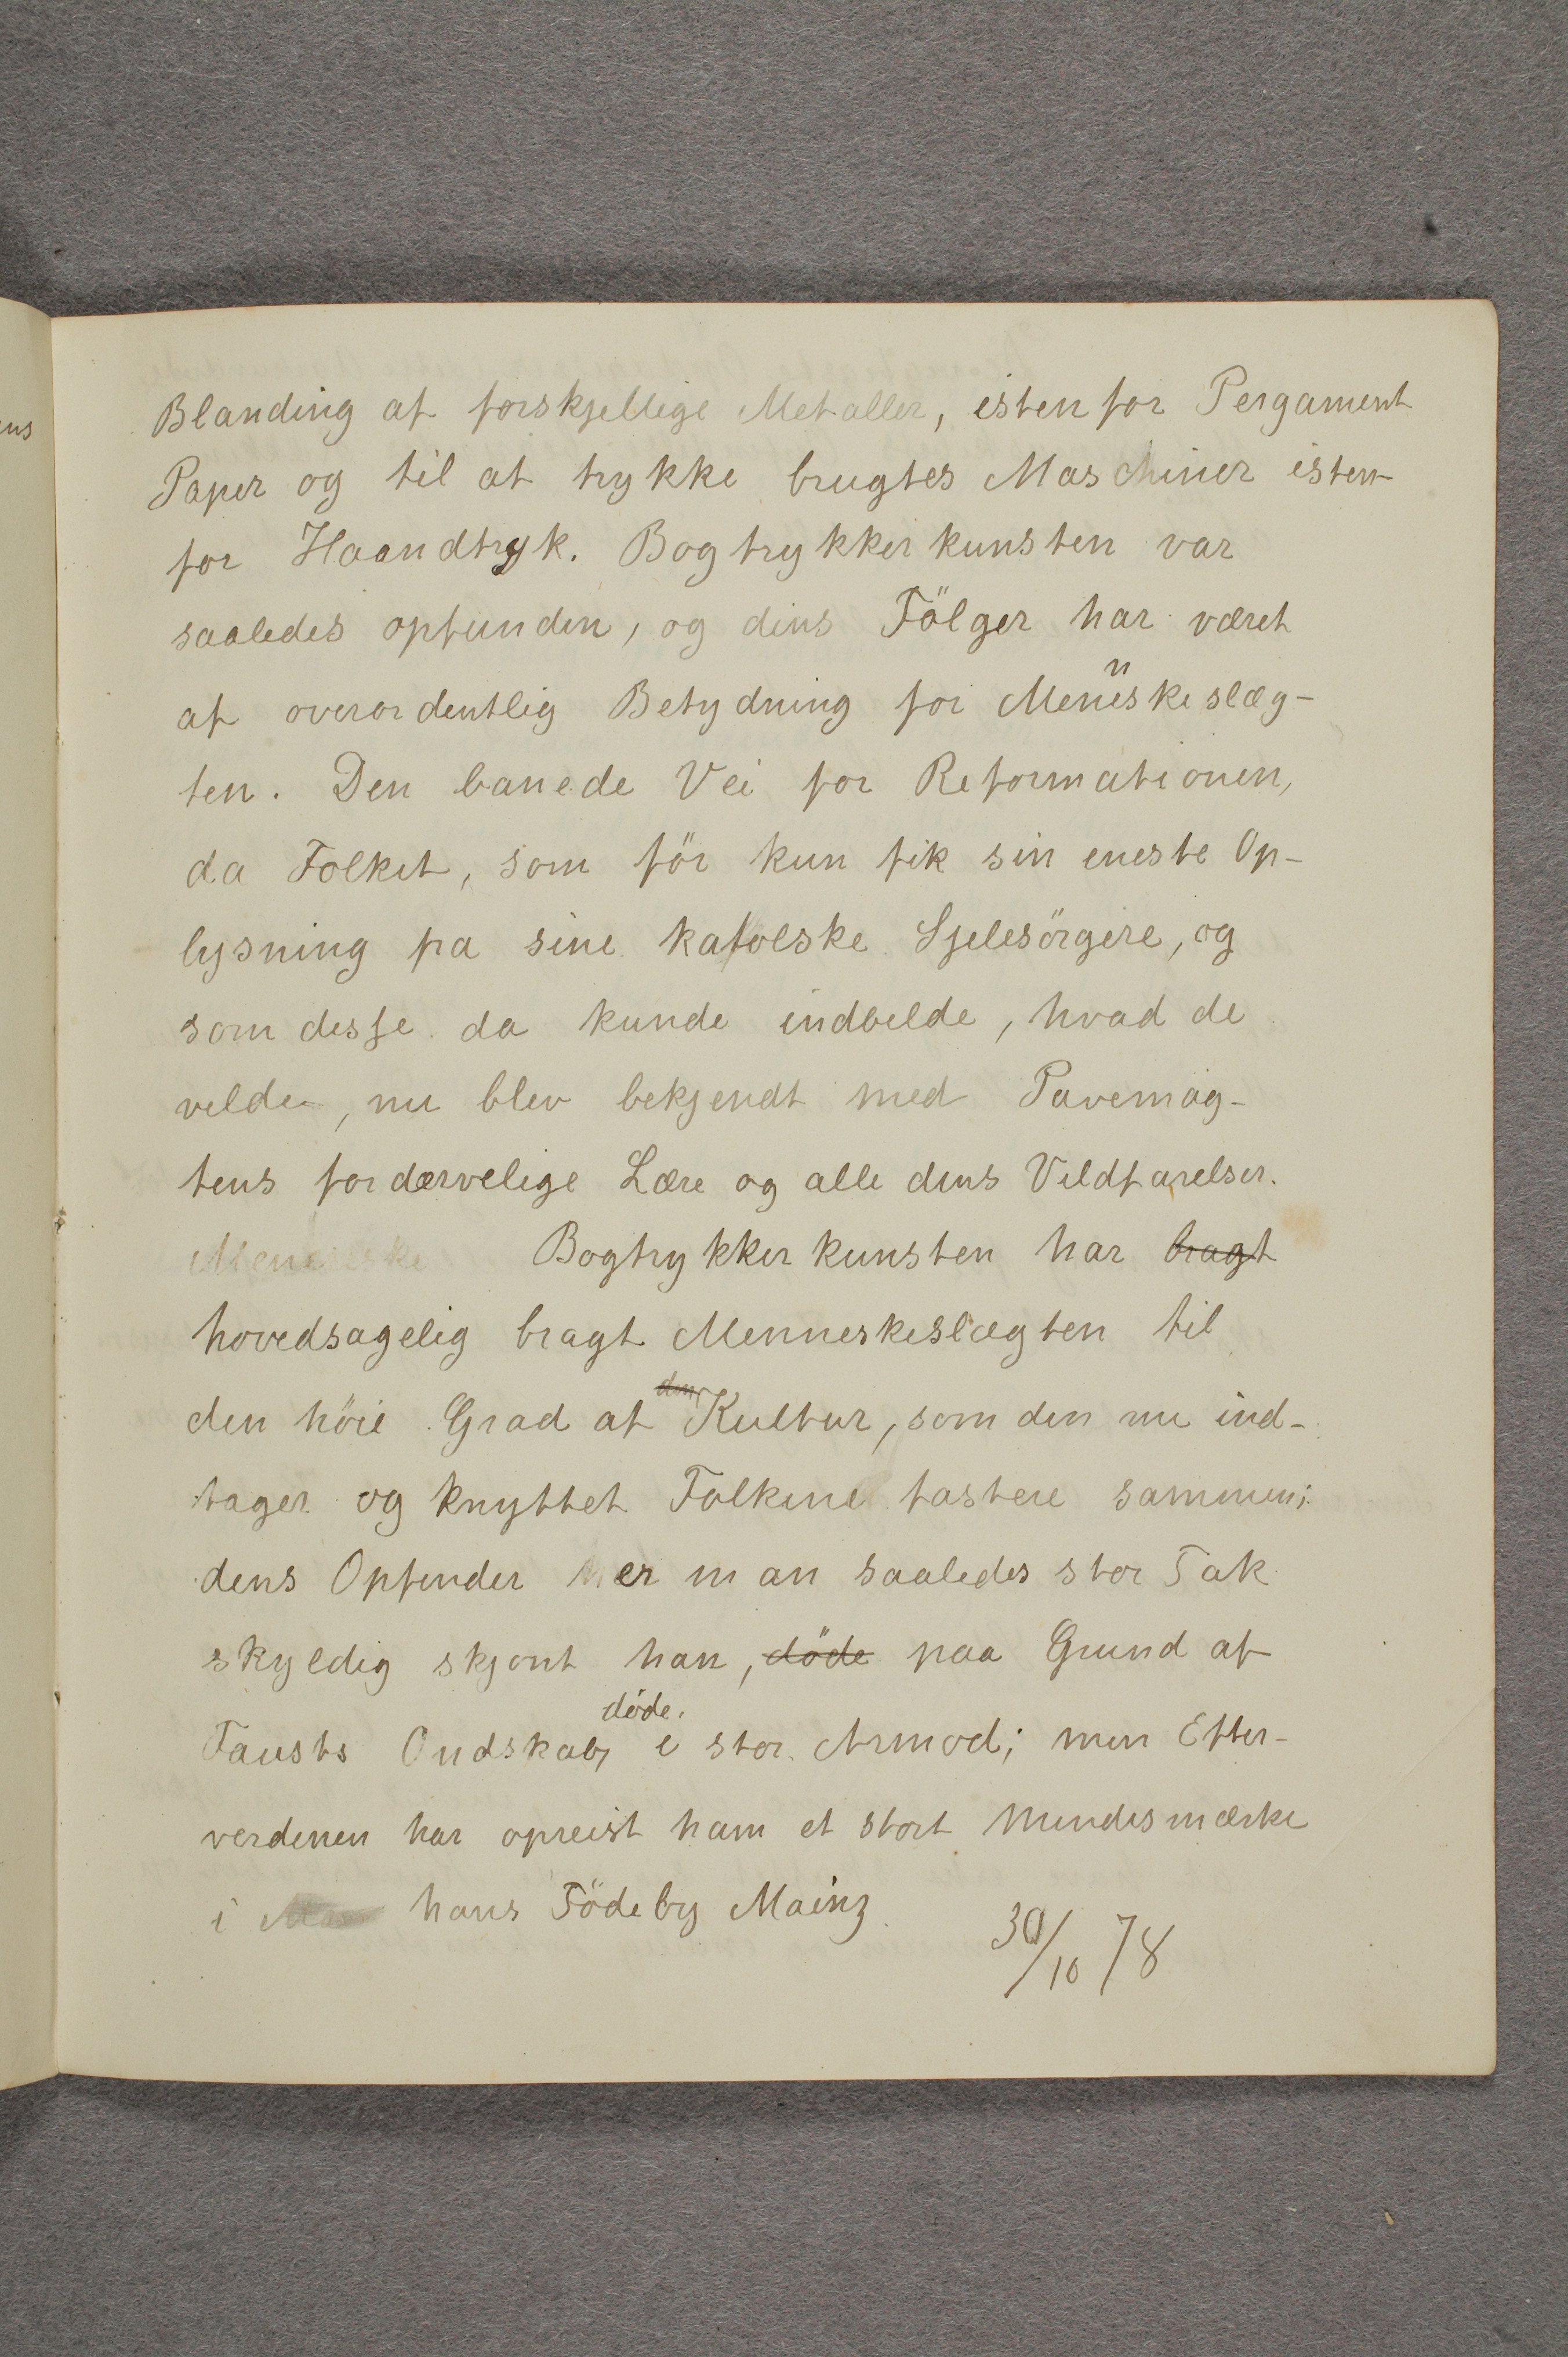 Blanding af forskjellige Metaller, istenfor Pergament
Paper og til at trykke brugtes Maschiner isten-
for Haandtryk. Bogtrykkerkunsten var
saaledes opfunden, og dens Fölger har været
af overordentlig Betydning for Menneskeslæg-
ten. Den banede Vei for Reformationen,
da Folket, som för kun fik sin eneste Op-
lysning pa sine katolske Sjelesörgere, og
som disse da kunde indbilde, hvad de
vilde, nu blev bekjendt med Pavemag-
tens fordærvelige Lære og alle dens Vildfarelser.
Menneske Bogtrykkerkunsten har bragt
hovedsagelig bragt Menneskeslægten til
den höie Grad af den Kultur, som den nu ind-
tager og knyttet Folkene fastere sammen;
dens Opfinder er man saaledes stor Tak
skyldig skjont han, döde paa Grund af
Fausts Ondskab, döde, i stor Armod; men Efter-
verdenen har opreist ham et stort Mindesmærke
i hans Födeby Mainz
30/10 78
ens